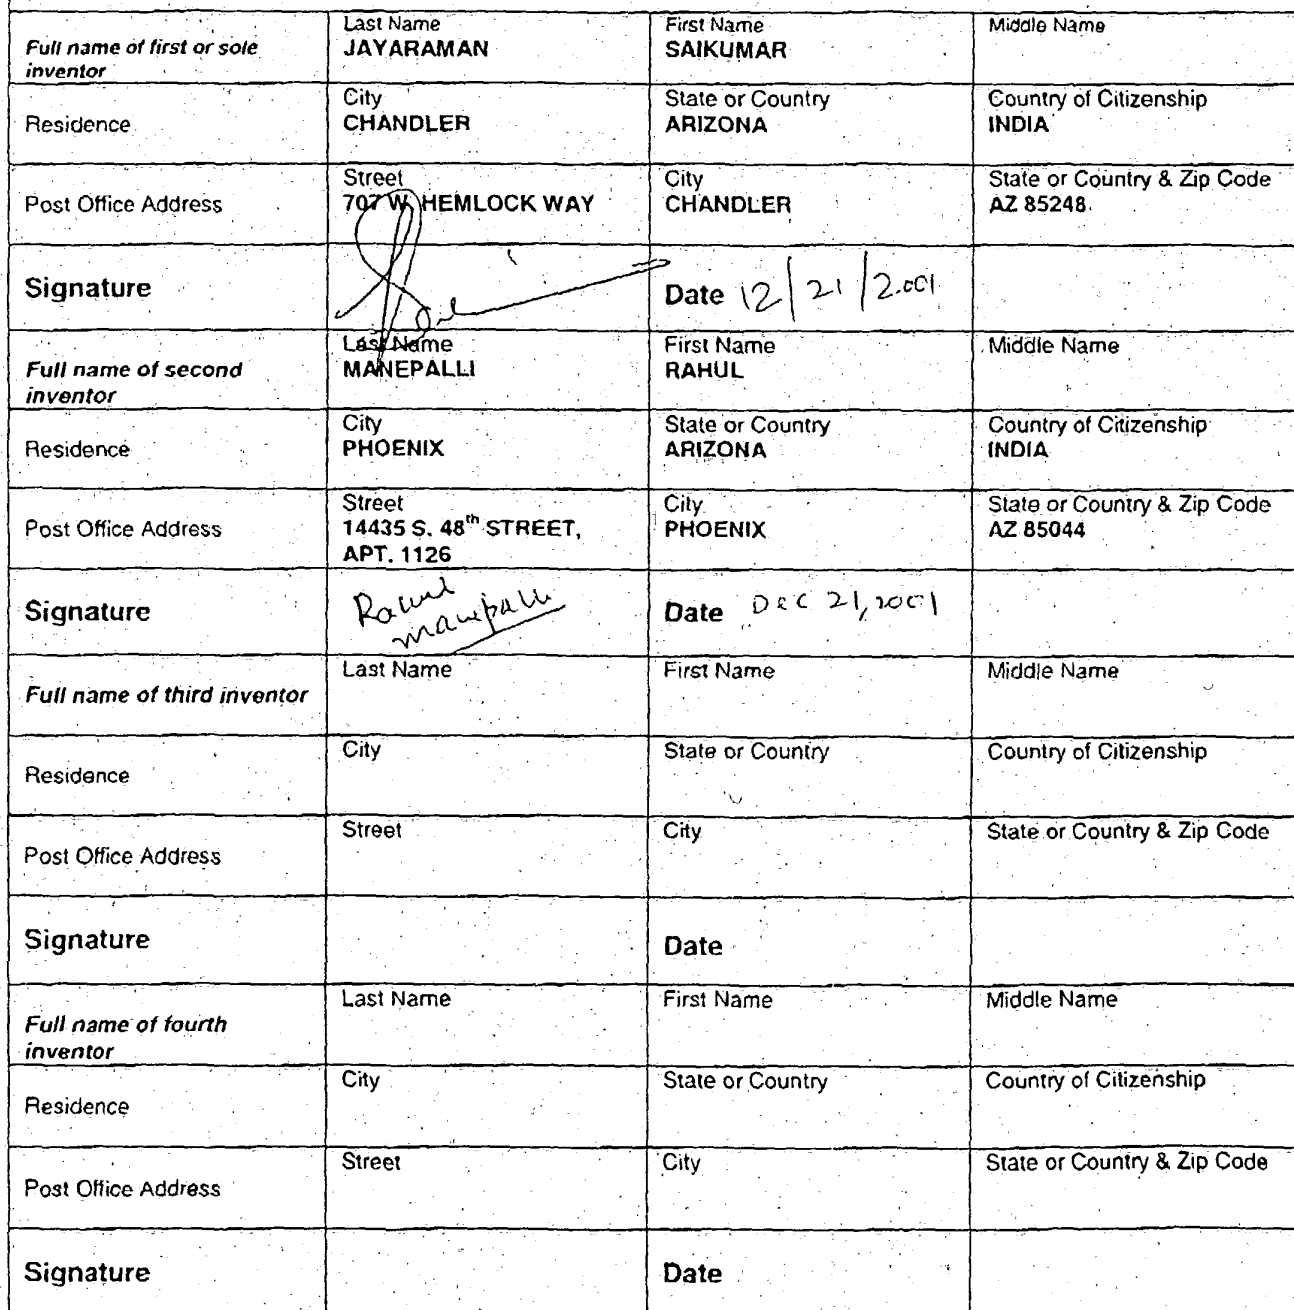 Full name of first or sole inventor
Last Name
JAYARAMAN
First Name
SAIKUMAR
Middle Name
Residence
City
CHANDLER
State or Country
ARIZONA
Country of Citizenship
INDIA
Post Office Address
Street
707 W. HEMLOCK WAY
City
CHANDLER
State or Country & Zip Code
AZ 85248
Signature
Date 12/21/2001
Full name of second inventor
Last Name
MANEPALLI
First Name
RAHUL
Middle Name
Residence
City
PHOENIX
State or Country
ARIZONA
Country of Citizenship
INDIA
Post Office Address
Street
14435 S. 48th STREET,
APT. 1126
City
PHOENIX
State or Country & Zip Code
AZ 85044
Signature
Rahul
Manepalli
Date Dec 21, 2001
Full name of third inventor
Last Name
First Name
Middle Name
Residence
City
State or Country
Country of Citizenship
Post Office Address
Street
City
State or Country & Zip Code
Signature
Date
Full name of fourth inventor
Last Name
First Name
Middle Name
Residence
City
State or Country
Country of Citizenship
Post Office Address
Street
City
State or Country & Zip Code
Signature
Date